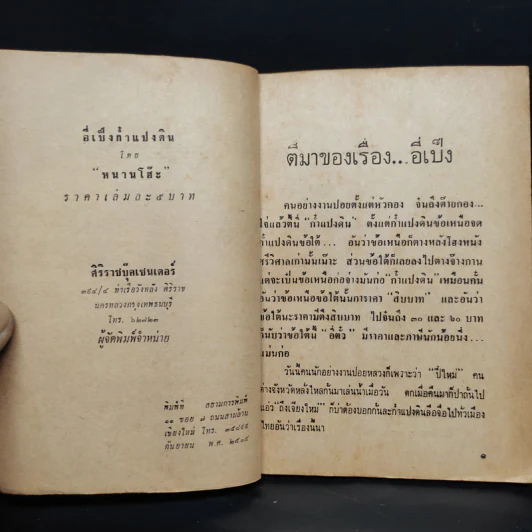 อี่เบ็งก๋ำแปงดิน
โดย
"หนานโฮ๊ะ"
ราคาเล่มละ ๕ บาท
ศิริราชบุ๊คเซนเตอร์
๓๙๔/๔ ท่าเรือวังหลัง ศิริราช
นครหลวงกรุงเทพธนบุรี
โทร. ๖๒๗๒๓
ผู้จัดพิมพ์จำหน่าย
พิมพ์ที่ สยามการพิมพ์
๑๑ ซอย ๗ ถนนสามล้าน
เชียงใหม่ โทร.
กันยายน พ.ศ. ๒๕๑๕
ตี้มาของเรื่อง...อี่เบ็ง
คนอย่างงานปอยตั้งแต่หัวกอง จ๋นถึงต๊ายกอง...
ใจ้แล้วตี้นี้ "ก๋ำแปงดิน" ตั้งแต่ก๋ำแปงดินข้อเหนือจด
ก๋ำแปงดินข้อใต้... อันว่าข้อเหนือก็ตางหลังโฮงหนัง
ศรีวิศาลเก่านั้นเน๊าะ ส่วนข้อใต้ก็เลยลงไปตางจ๊างกาน
แต่จะเป็นข้อเหนือก่อจ่างมันก่อ "ก๋ำแปงดิน" เหมือนกั๋น
อันว่าข้อเหนือข้อใต้นั้นราคา "สิบบาท" และอันว่า
ข้อใต้นะราคามีตึงสิบบาท ไปจ๋นถึง ๓๐ และ ๖๐ บาท
นับว่าข้อใต้นี้ "อี่ตั๋ว" มีราคาและภาษีนักน้อยนึ่ง...
แม่นก่อ
วันนี้คนนักอย่างงานปอยหลวงก็เพราะว่า "ปี๋ใหม่" คน
ต่างจังหวัดหลั่งไหลกันมาเล่นน้ำเมื่อวัน ตกเมื่อคืนมาก็ป่ากั๋นไป
แอ่ว "ถึงเจียงใหม่" ก็บ่าต้องบอกก้นละก๋ำแปงดินลือจื้อไปทั่วเมือง
ไทยอันว่าเรื่องนี้นา
๑